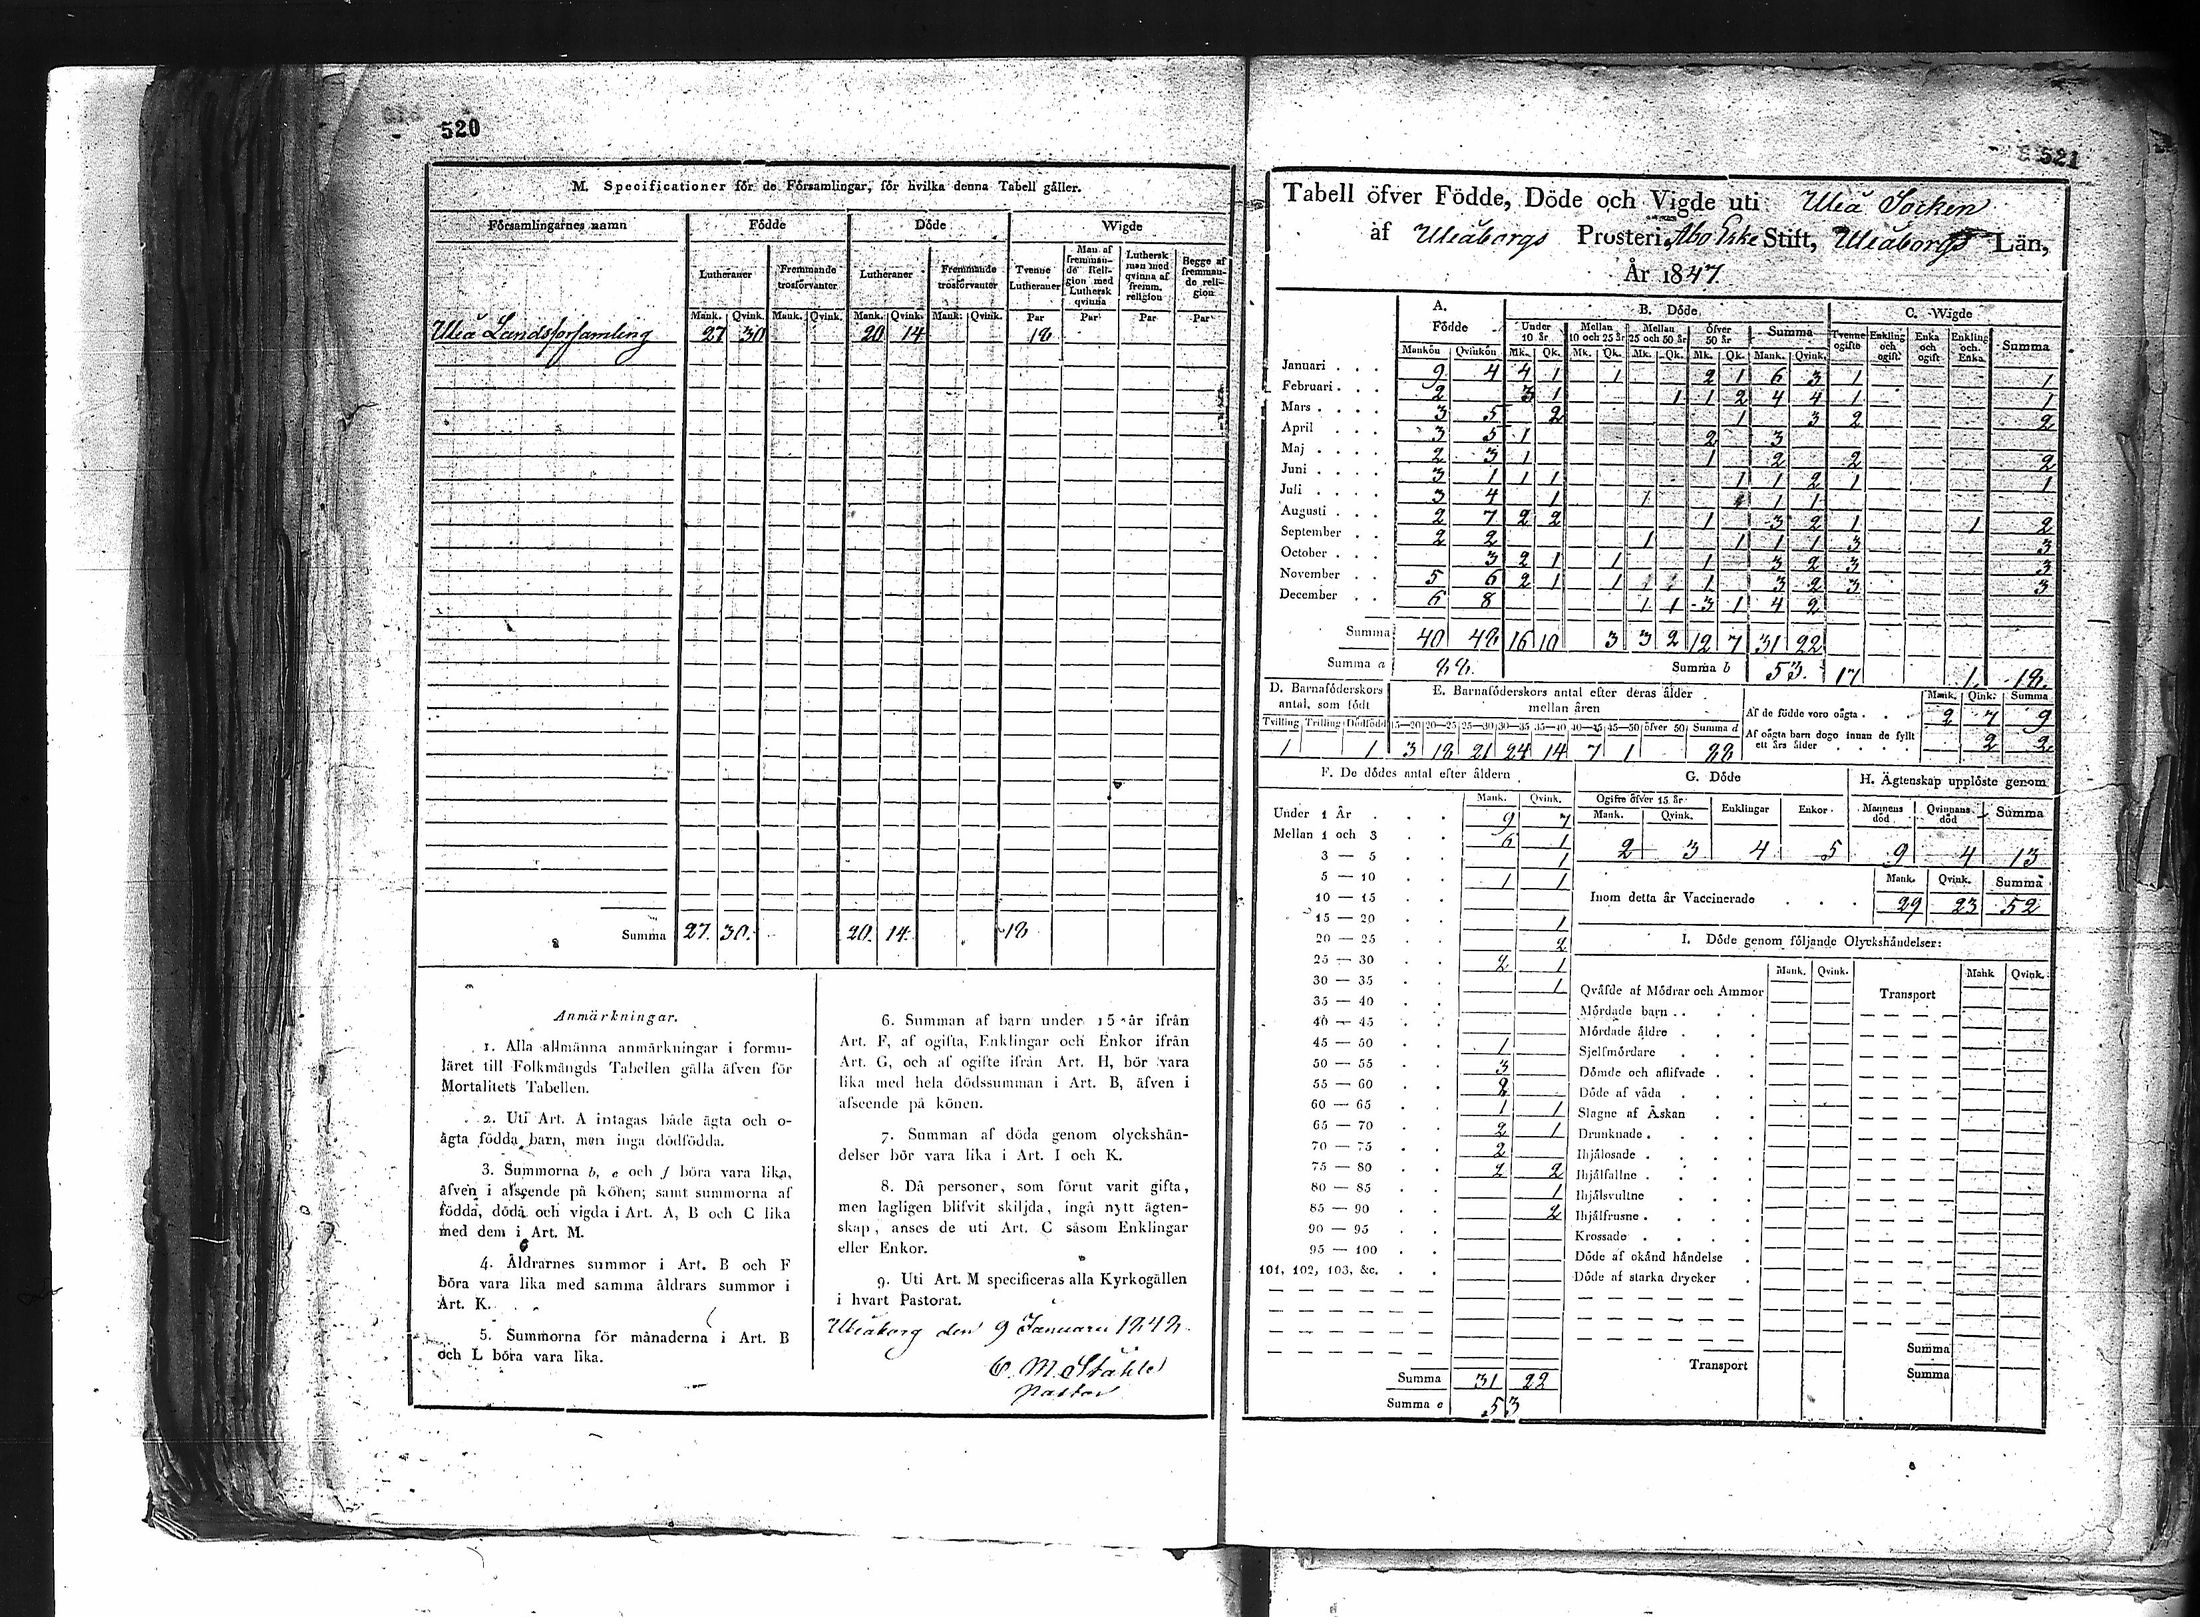 520
M. Specificationer för de Församlingar, för hvilka denna Tabell gäller.
Församlingarnes namn Födde Döde Wigde
Lutheraner Fremmande trosförvanter Lutheraner Fremmande trosförvanter Tvenne Lutheraner Man af fremmande Religion med Luthersk qvinna Luthersk man med qvinna af fremm. religion Begge af fremmande religion
Mank. Qvink. Mank. Qvink. Mank. Qvink. Mank. Qvink. Par Par Par Par
Uleå Landsforsamling 27 30 20 14 18
Summa 27. 30. 20. 14. 18
Anmärkningar.
1. Alla allmänna anmärkningar i formu-
läret till Folkmängds Tabellen gälla äfven för
Mortalitets Tabellen.
2. Uti Art. A intagas både ägta och o-
ägta födda barn, men inga dödfödda.
3. Summorna b, e och f böra vara lika,
äfven i afseende på könen; samt summorna af
födda, döda och vigda i Art. A, B och C lika
med dem i Art. M.
4. Åldrarnes summor i Art. B och F
böra vara lika med samma åldrars summor i
Art. K.
5. Summorna för månaderna i Art. B
och L böra vara lika.
6. Summan af barn under 15 år ifrån
Art. F, af ogifta, Enklingar och Enkor ifrån
Art. G, och af ogifte ifrån Art. H, bör vara
lika med hela dödssumman i Art. B, äfven i
afseende på könen.
7. Summan af döda genom olyckshän-
delser bör vara lika i Art. I och K.
8. Då personer, som förut varit gifta,
men lagligen blifvit skiljda, ingå nytt ägten-
skap, anses de uti Art. C såsom Enklingar
eller Enkor.
9. Uti Art. M specificeras alla Kyrkogällen
i hvart Pastorat.
Uleåborg den 9 Januarii 1848.
C. M. Ståhle
Pastor
521
Tabell öfver Födde, Döde och Vigde uti Uleå Socken
af Uleåborgs Prosteri, Åbo Erke Stift, Uleåborgs Län,
År 1847.
A. Födde B. Döde C. Wigde
Under 10 år Mellan 10 och 25 år Mellan 25 och 50 år öfver 50 år Summa Tvenne ogifte Enkling och ogift Enka och ogift Enkling och Enka Summa
Mankön Qvinkön Mk. Qk. Mk. Qk. Mk. Qk. Mk. Qk. Mank. Qvink.
Januari 9 4 4 1 1 2 1 6 3 1 1
Februari 2 3 1 1 1 2 4 4 1 1
Mars 3 5 2 1 3 2 2
April 3 5 1 2 3
Maj 2 3 1 1 2 2 2
Juni 3 1 1 1 1 1 2 1 1
Juli 3 4 1 1 1 1
Augusti 2 7 2 2 1 3 2 1 1 2
September 2 2 1 1 1 1 3 3
October 3 2 1 1 1 3 2 3 3
November 5 6 2 1 1 1 3 2 3 3
December 6 8 1 1 3 1 4 2
Summa 40 48 16 10 3 3 2 12 7 31 22
Summa a 88. Summa b 53. 17 1 18.
D. Barnaföderskors antal, som födt
Tvilling Trilling Dödfödd
1 1
E. Barnaföderskors antal efter deras ålder mellan åren
15—20 20—25 25—30 30—35 35—40 40—45 45—50 öfver 50 Summa d
3 18 21 24 14 7 1 88
Mank. Qink. Summa
Af de födde voro oägta 2 7 9
Af oägta barn dogo innan de fyllt ett års ålder 2 2
F. De dödes antal efter åldern
Mank. Qvink.
Under 1 År 9 7
Mellan 1 och 3 6 1
3 — 5 1
5 — 10 1 1
10 — 15
15 — 20 1
20 — 25 2
25 — 30 2 1
30 — 35 1
35 — 40
40 — 45
45 — 50 1
50 — 55 3
55 — 60 2
60 — 65 1 1
65 — 70 2 1
70 — 75 2
75 — 80 2 2
80 — 85 1
85 — 90 2
90 — 95
95 — 100
101, 102, 103, &c.
Summa 31 22
Summa e 53
G. Döde
Ogifte öfver 15 år Enklingar Enkor
Mank. Qvink.
2 3 4 5
H. Ägtenskap upplöste genom
Mannens död Qvinnans död Summa
9 4 13
Mank. Qvink. Summa
Inom detta år Vaccinerade 29 23 52
I. Döde genom följande Olyckshändelser:
Mank. Qvink. Mank Qvink.
Qväfde af Mödrar och Ammor Transport
Mördade barn
Mördade äldre
Sjelfmördare
Dömde och aflifvade
Döde af våda
Slagne af Åskan
Drunknade
Ihjälosade
Ihjälfallne
Ihjälsvultne
Ihjälfrusne
Krossade
Döde af okänd händelse
Döde af starka drycker
Summa
Transport Summa